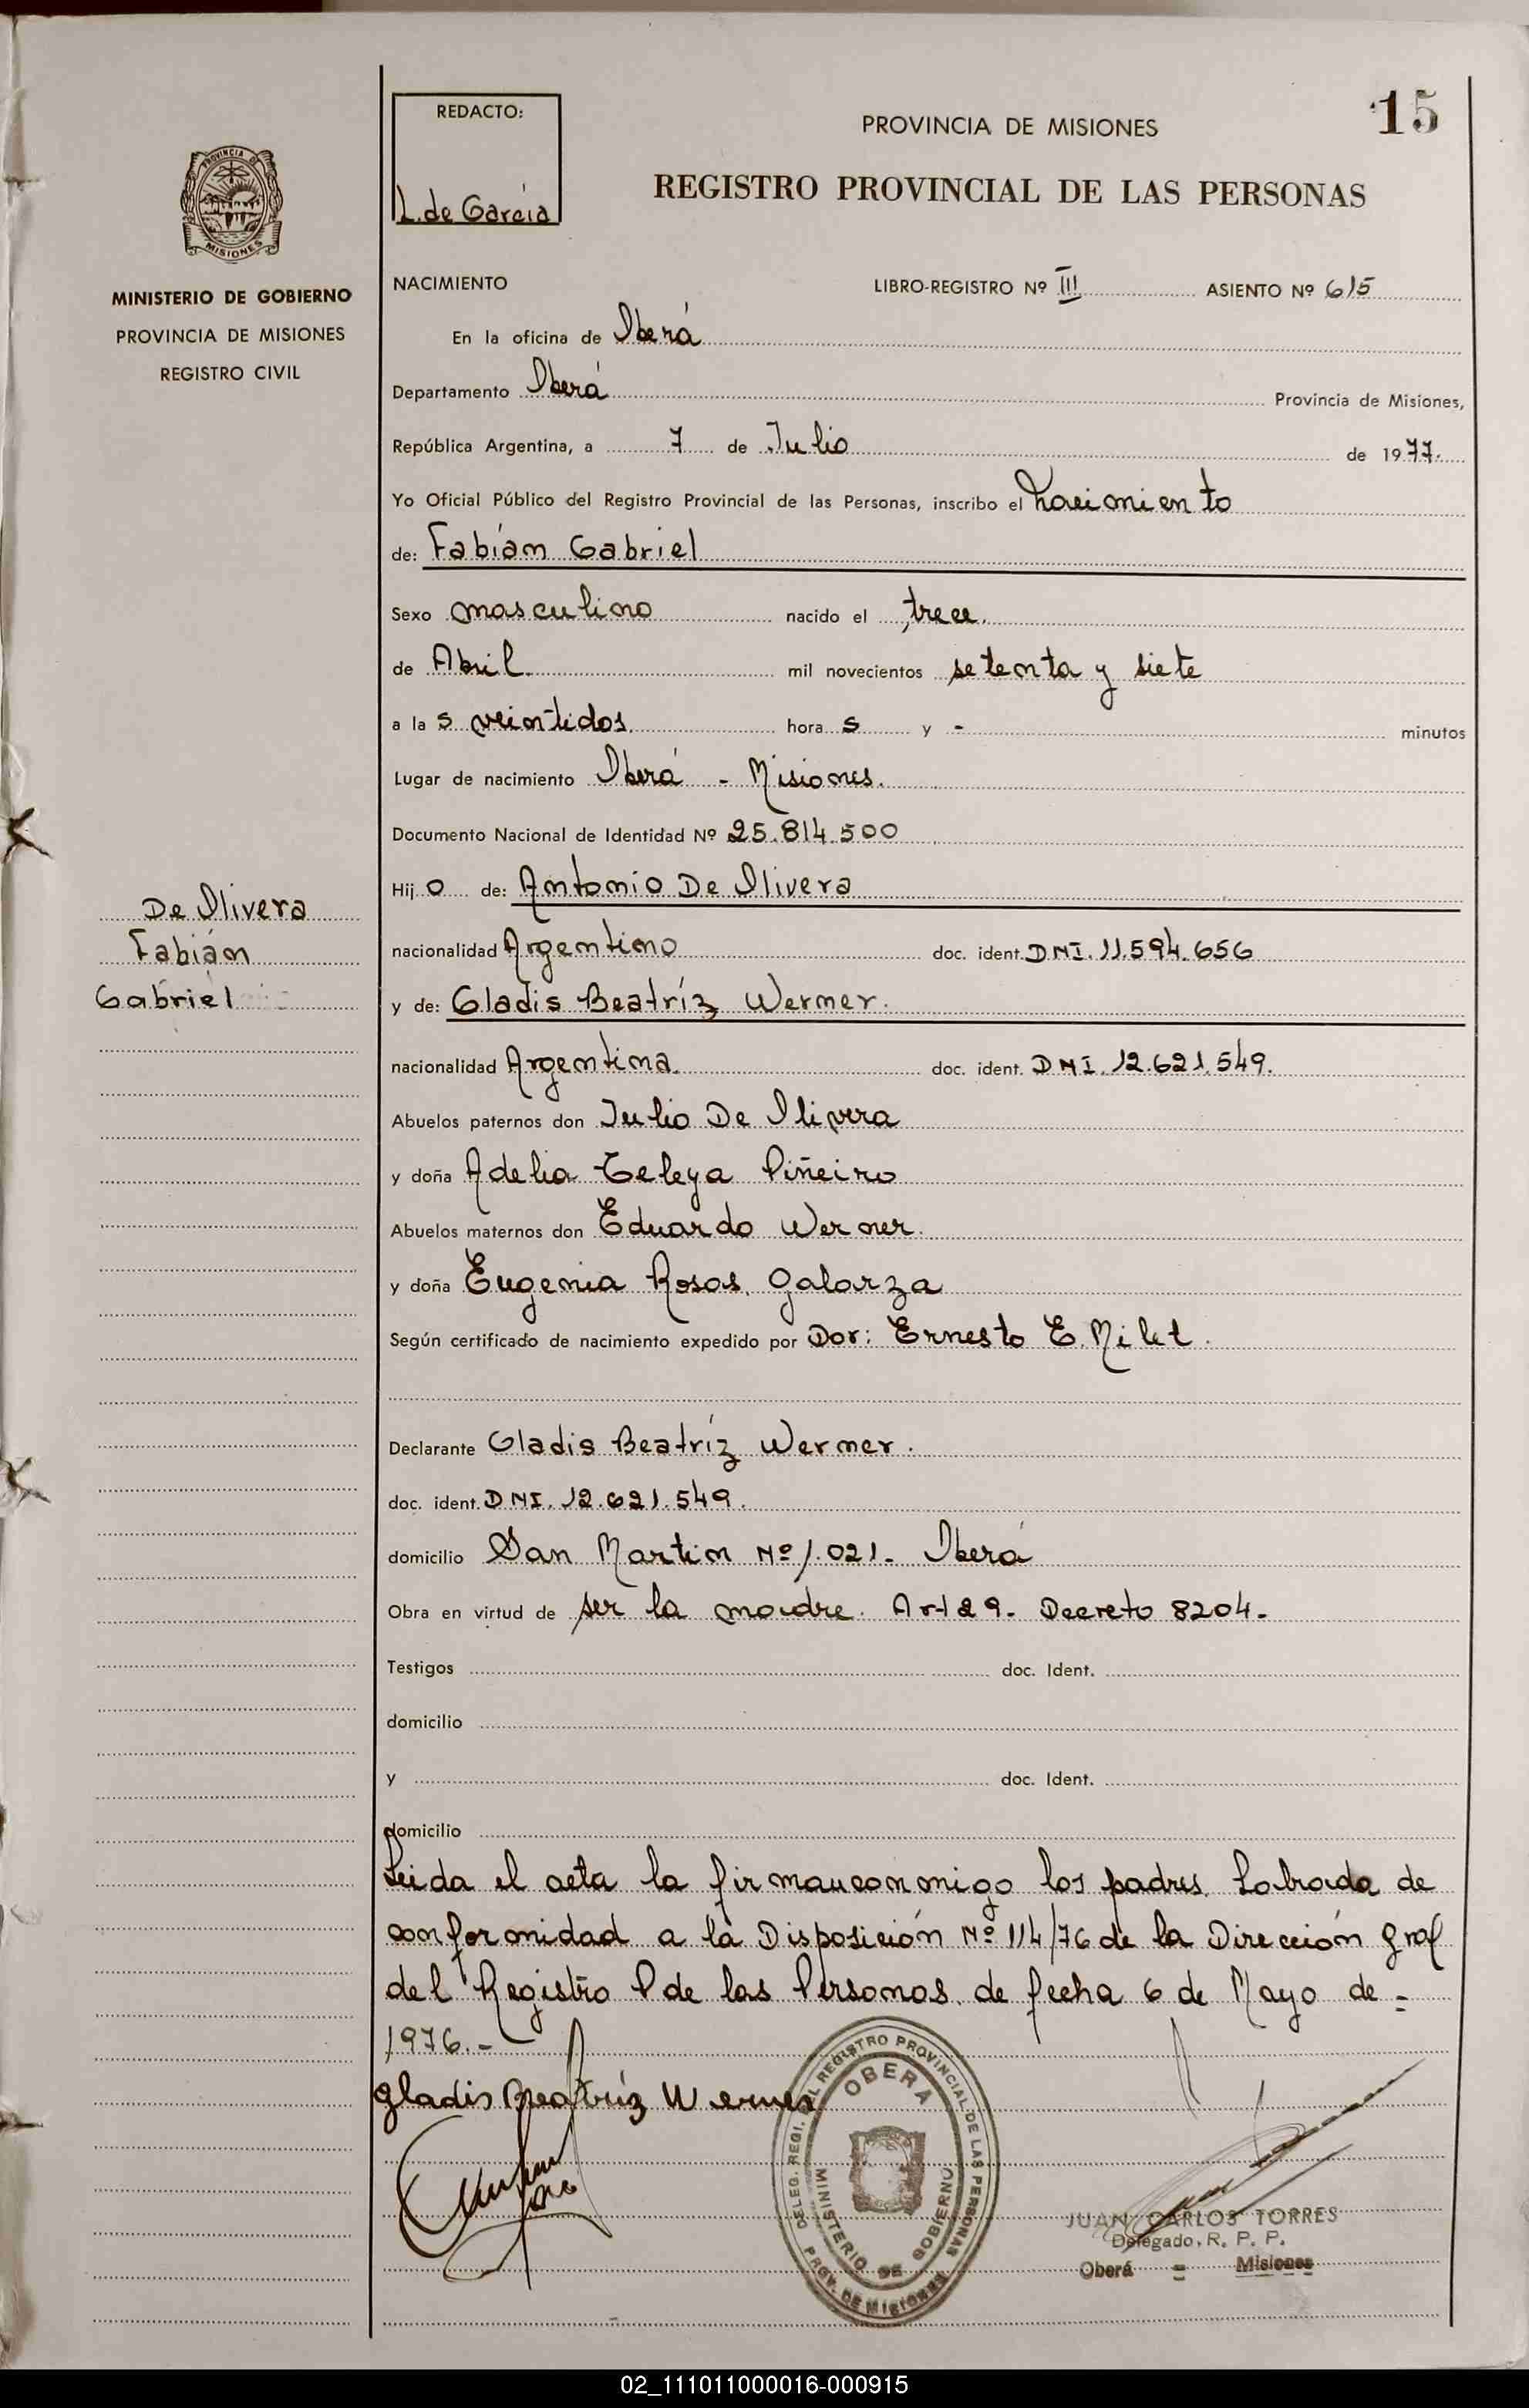 15
REDACTO:
L. de García
PROVINCIA DE MISIONES
REGISTRO PROVINCIAL DE LAS PERSONAS
PROVINCIA DE
MISIONES
MINISTERIO DE GOBIERNO
PROVINCIA DE MISIONES
REGISTRO CIVIL
NACIMIENTO LIBRO-REGISTRO Nº III ASIENTO Nº 615
En la oficina de Oberá
Departamento Oberá Provincia de Misiones,
República Argentina, a 7 de Julio de 1977.
Yo Oficial Público del Registro Provincial de las Personas, inscribo el nacimiento
de: Fabián Gabriel
Sexo masculino nacido el trece.
de Abril. mil novecientos setenta y siete
a la s veintidos. hora s y - minutos
Lugar de nacimiento Oberá - Misiones.
Documento Nacional de Identidad Nº 25.814.500
Hij o de: Antonio De Olivera
De Olivera
Fabián
Gabriel
nacionalidad Argentino doc. ident. DNI. 11.594.656
y de: Gladis Beatríz Werner.
nacionalidad Argentina. doc. ident. DNI. 12.621.549.
Abuelos paternos don Julio De Olivera
y doña Adelia Celeya Piñeiro
Abuelos maternos don Eduardo Werner.
y doña Eugenia Rosas. Galarza
Según certificado de nacimiento expedido por Dor: Ernesto E. Milet.
Declarante Gladis Beatríz Werner.
doc. ident. DNI. 12.621.549.
domicilio San Martin Nº 1.021- Oberá
Obra en virtud de ser la madre. Art 29- Decreto 8204-
Testigos doc. Ident.
domicilio
y doc. Ident.
domicilio
Leida el acta la firman conmigo los padres. Labrada de
conformidad a la Disposición Nº 114/76 de la Dirección Gral
del Registro P de las Personas. de fecha 6 de Mayo de =
1976.-
Gladis Beatriz Werner
DELEG. REGI. DEL REGISTRO PROVINCIAL DE LAS PERSONAS
OBERÁ
MINISTERIO DE GOBIERNO
PROV. DE MISIONES
JUAN CARLOS TORRES
Delegado. R. P. P.
Oberá = Misiones
02_111011000016-000915